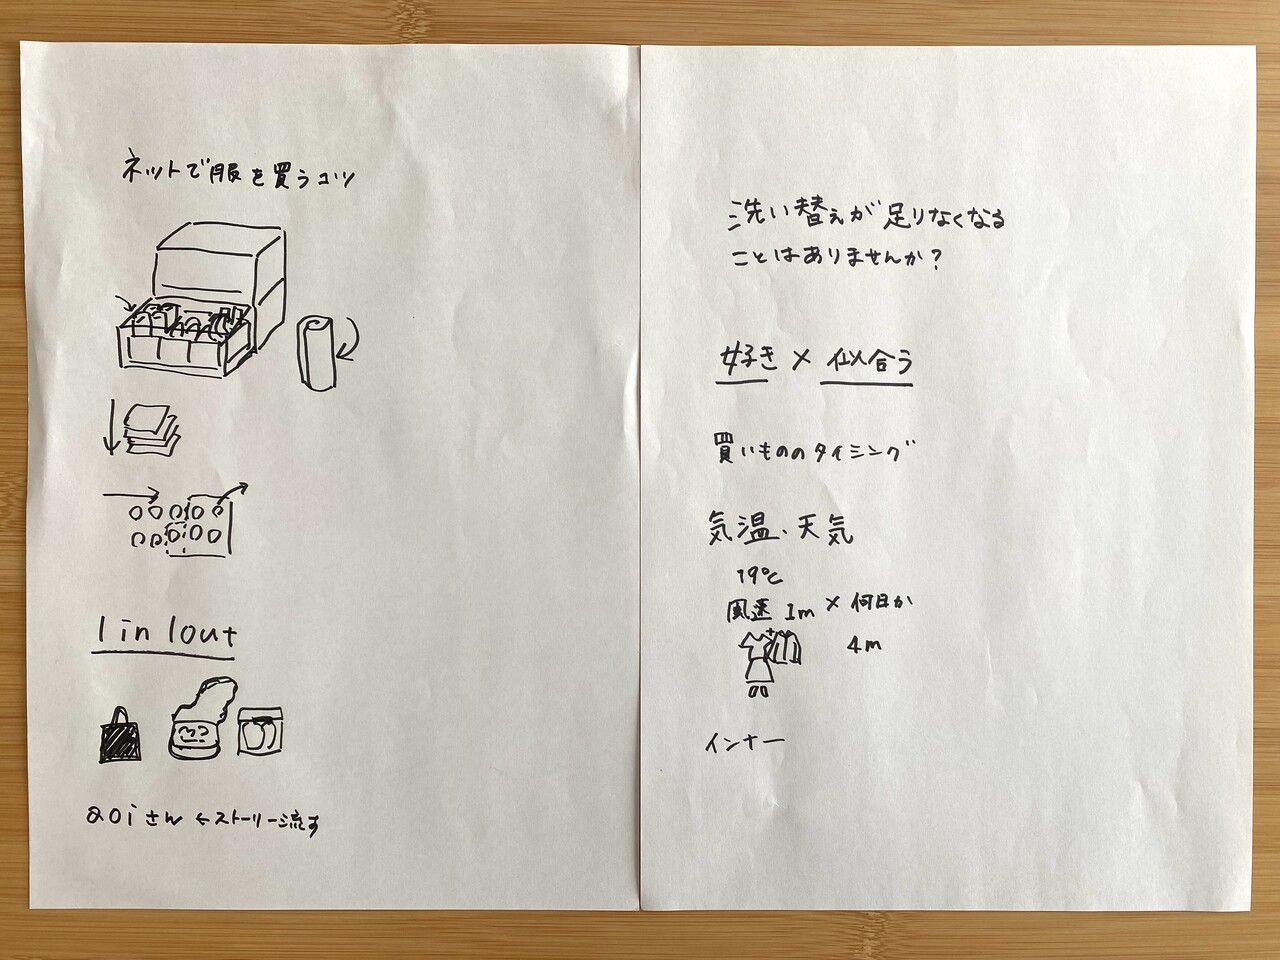 ネットで服を買うコツ
1 in 1 out
aoiさん ←ストーリー流す
洗い替えが足りなくなる
ことはありませんか?
好き × 似合う
買いもののタイミング
気温、天気
19℃
風速 1m × 何日か
4m
インナー